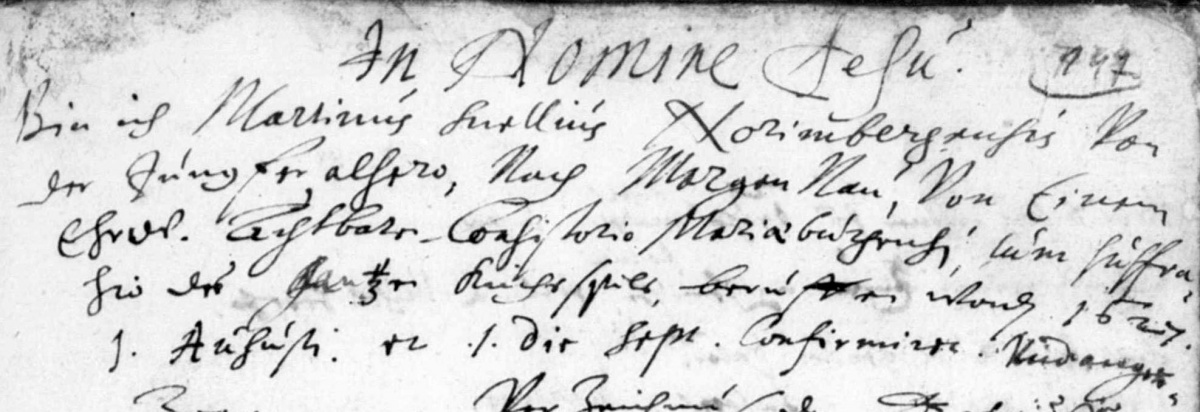 In Nomine Jesu. 147
Bin ich Martinus Snellius Norimbergensis Von
der Jungfer alhero, Nach Morgen Nau, Von Einem
Ehrw. Achtbarn Consistorio Mariæburgensi, zum suffra
gio des gantzen Kirchspils, beruffen word 1627.
1. Augusti. et 1. Die Sept. Confirmiret.